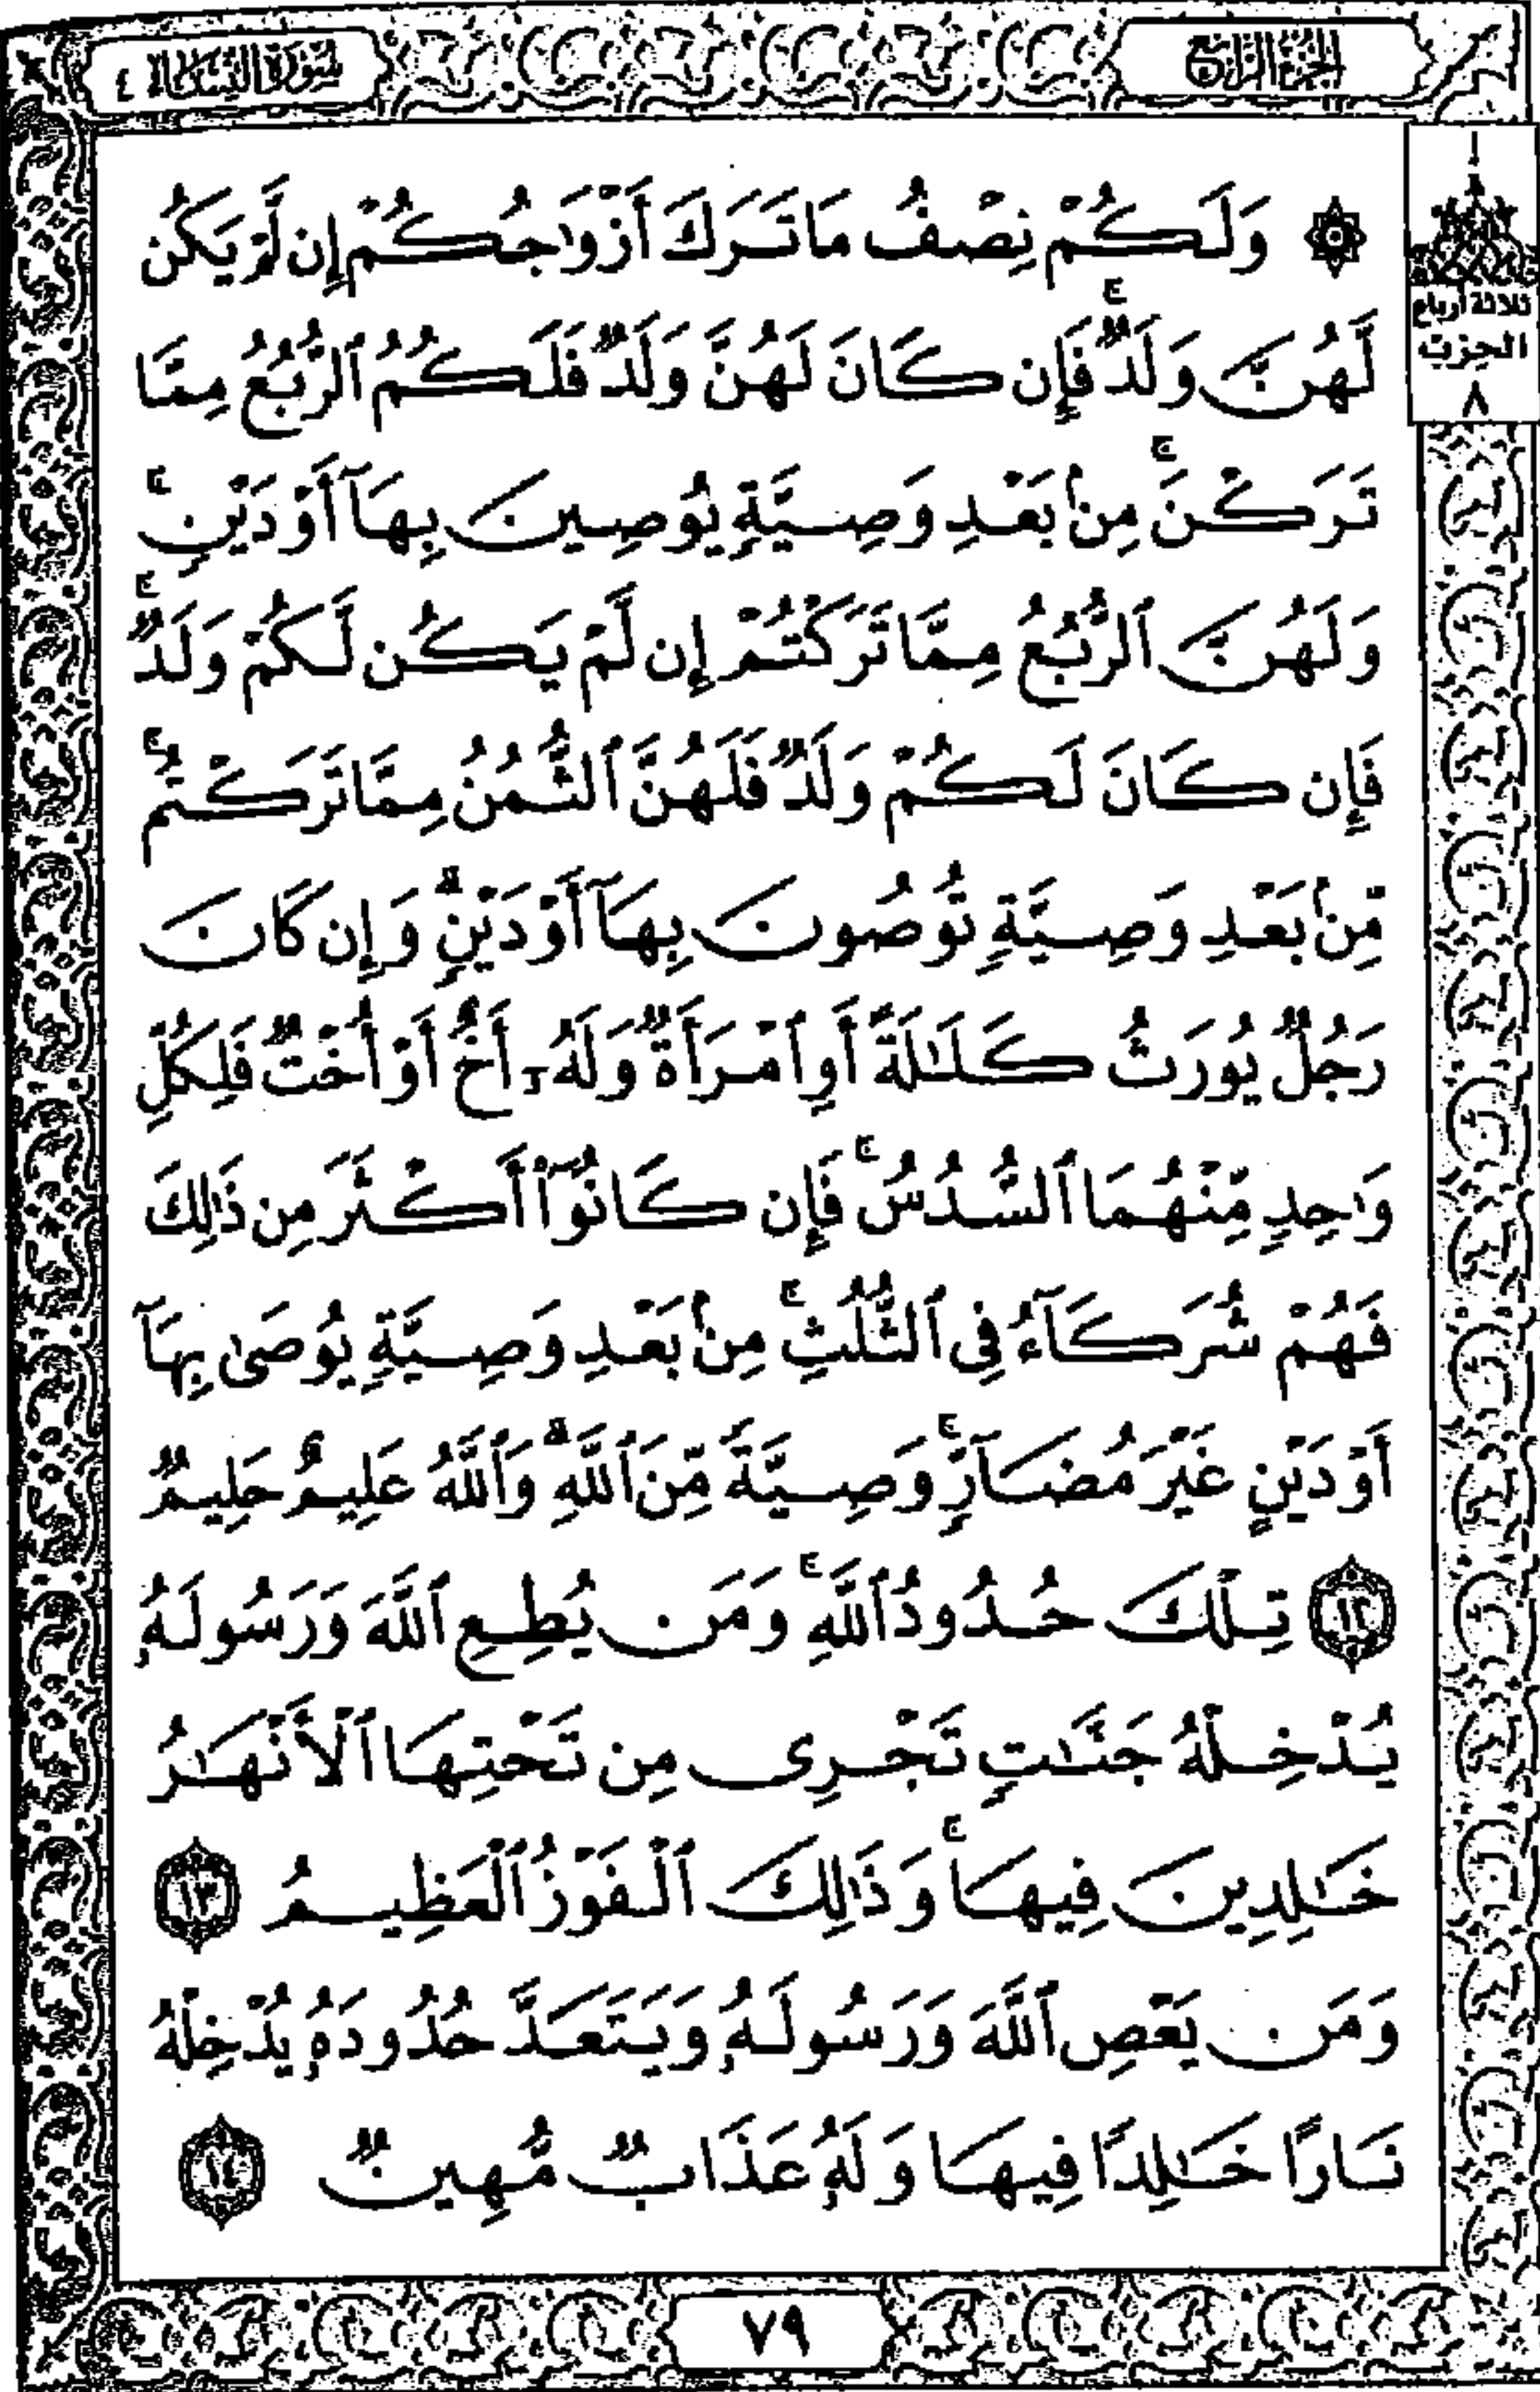 سُورَةُ النِّسَاءِ ٤
الجُزْءُ الرَّابِعُ
ثلاثة أرباع
الحزب
٨
۞ وَلَكُمْ نِصْفُ مَا تَرَكَ أَزْوَٰجُكُمْ إِن لَّمْ يَكُن
لَّهُنَّ وَلَدٌ ۚ فَإِن كَانَ لَهُنَّ وَلَدٌ فَلَكُمُ ٱلرُّبُعُ مِمَّا
تَرَكْنَ ۚ مِنۢ بَعْدِ وَصِيَّةٍ يُوصِينَ بِهَآ أَوْ دَيْنٍ ۚ
وَلَهُنَّ ٱلرُّبُعُ مِمَّا تَرَكْتُمْ إِن لَّمْ يَكُن لَّكُمْ وَلَدٌ ۚ
فَإِن كَانَ لَكُمْ وَلَدٌ فَلَهُنَّ ٱلثُّمُنُ مِمَّا تَرَكْتُم ۚ
مِّنۢ بَعْدِ وَصِيَّةٍ تُوصُونَ بِهَآ أَوْ دَيْنٍ ۗ وَإِن كَانَ
رَجُلٌ يُورَثُ كَلَٰلَةً أَوِ ٱمْرَأَةٌ وَلَهُۥٓ أَخٌ أَوْ أُخْتٌ فَلِكُلِّ
وَٰحِدٍ مِّنْهُمَا ٱلسُّدُسُ ۚ فَإِن كَانُوٓا۟ أَكْثَرَ مِن ذَٰلِكَ
فَهُمْ شُرَكَآءُ فِى ٱلثُّلُثِ ۚ مِنۢ بَعْدِ وَصِيَّةٍ يُوصَىٰ بِهَآ
أَوْ دَيْنٍ غَيْرَ مُضَآرٍّ ۚ وَصِيَّةً مِّنَ ٱللَّهِ ۗ وَٱللَّهُ عَلِيمٌ حَلِيمٌ
١٢ تِلْكَ حُدُودُ ٱللَّهِ ۚ وَمَن يُطِعِ ٱللَّهَ وَرَسُولَهُۥ
يُدْخِلْهُ جَنَّٰتٍ تَجْرِى مِن تَحْتِهَا ٱلْأَنْهَٰرُ
خَٰلِدِينَ فِيهَا ۚ وَذَٰلِكَ ٱلْفَوْزُ ٱلْعَظِيمُ ١٣
وَمَن يَعْصِ ٱللَّهَ وَرَسُولَهُۥ وَيَتَعَدَّ حُدُودَهُۥ يُدْخِلْهُ
نَارًا خَٰلِدًا فِيهَا وَلَهُۥ عَذَابٌ مُّهِينٌ ١٤
٧٩